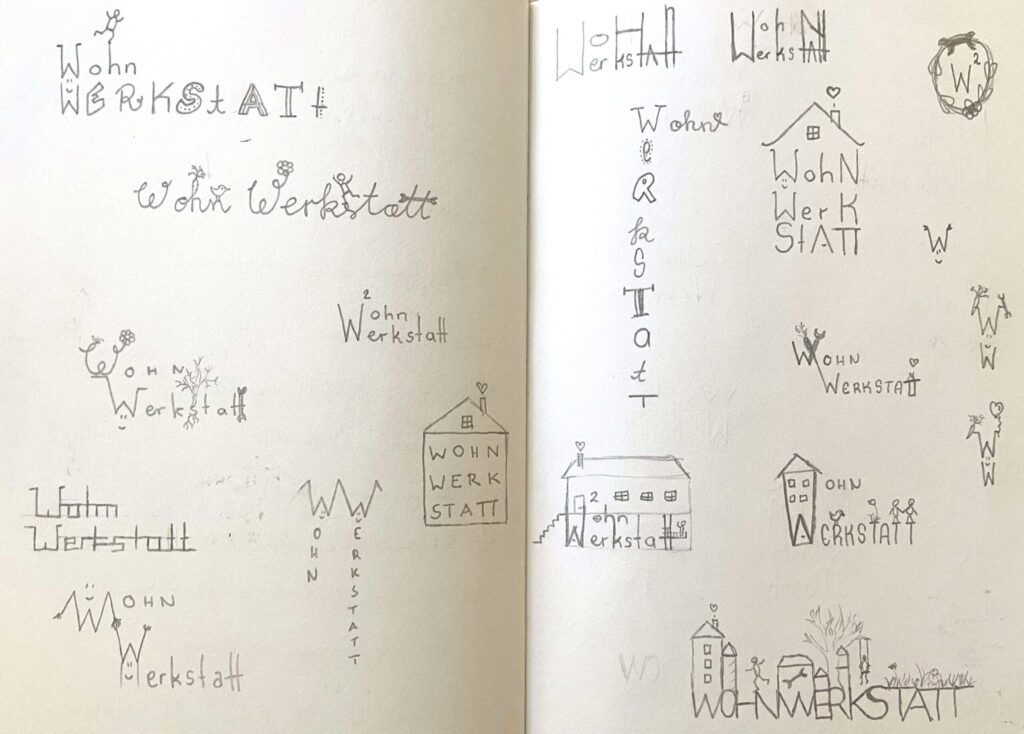 Wohn
WERKStATt
Wohn Werkstatt
W²ohn
Werkstatt
WOHN
Werkstatt
WOHN
WERK
STATT
Wohn
Werkstatt
WW
OHN
ERKSTATT
WOHN
Werkstatt
WoHatt
erkst
WohN
Werkstatt
W²
Wohn
e
R
k
S
T
a
t
T
WohN
WerK
StATT
W
W
W
WOHN
WERKSTATT
W
W
W²ohn
Werkstatt
WOHN
WERKSTATT
WO
WOHNWERKSTATT